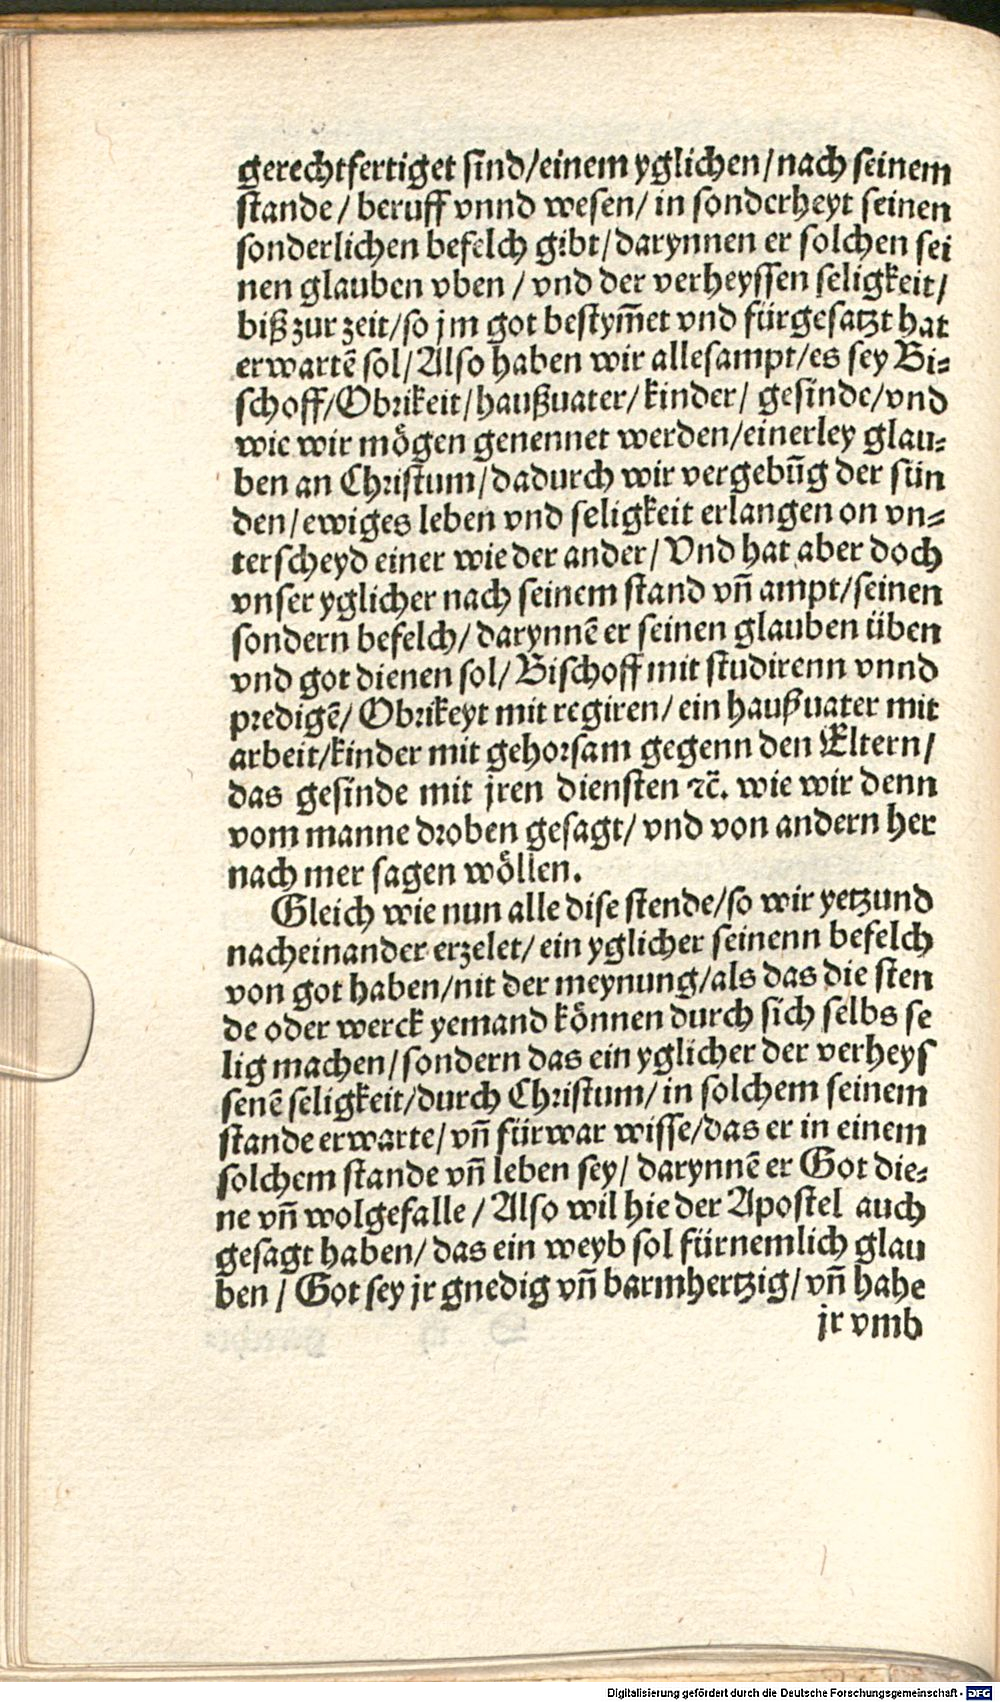 gerechtfertiget sind/einem yglichen/nach seinem
stande/ beruff vnnd wesen/ in sonderheyt seinen
sonderlichen befelch gibt/darynnen er solchen sei
nen glauben vben / vnd der verheyssen seligkeit/
biß zur zeit/so jm got bestym̃et vnd fürgesatzt hat
erwartẽ sol/Also haben wir allesampt/es sey Bi⸗
schoff/Obrikeit/haußuater/kinder/ gesinde/vnd
wie wir mögen genennet werden/einerley glau⸗
ben an Christum/dadurch wir vergebũg der sün
den/ewiges leben vnd seligkeit erlangen on vn⸗
terscheyd einer wie der ander/ Vnd hat aber doch
vnser yglicher nach seinem stand vñ ampt/seinen
sondern befelch/darynnẽ er seinen glauben üben
vnd got dienen sol/ Bischoff mit studirenn vnnd
predigẽ/ Obrikeyt mit regiren/ ein haußuater mit
arbeit/kinder mit gehorsam gegenn den Eltern/
das gesinde mit jren diensten ꝛc̃. wie wir denn
vom manne droben gesagt/ vnd von andern her
nach mer sagen wöllen.
Gleich wie nun alle dise stende/so wir yetzund
nacheinander erzelet/ ein yglicher seinenn befelch
von got haben/nit der meynung/als das die sten
de oder werck yemand können durch sich selbs se
lig machen/sondern das ein yglicher der verheys
senẽ seligkeit/durch Christum/ in solchem seinem
stande erwarte/ vñ fürwar wisse/das er in einem
solchem stande vñ leben sey/ darynnẽ er Got die⸗
ne vñ wolgefalle / Also wil hie der Apostel auch
gesagt haben/ das ein weyb sol fürnemlich glau
ben / Got sey jr gnedig vñ barmhertzig/ vñ habe
jr vmb
Digitalisierung gefördert durch die Deutsche Forschungsgemeinschaft - DFG